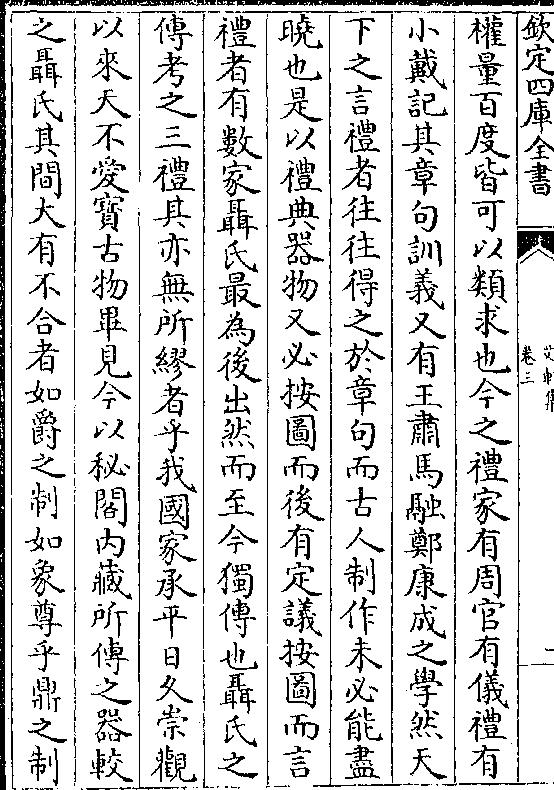 欽定四庫全書
艾軒集
卷三
權量百度皆可以類求也今之禮家有周官有儀禮有
小戴記其章句訓義又有王肅馬融鄭康成之學然天
下之言禮者往往得之於章句而古人制作未必能盡
曉也是以禮典器物又必按圖而後有定議按圖而言
禮者有數家聶氏最為後出然而至今獨傳也聶氏之
傳考之三禮其亦無所繆者乎我國家承平日久崇觀
以來天不愛寶古物畢見今以秘閣内藏所傳之器較
之聶氏其間大有不合者如爵之制如象尊乎鼎之制